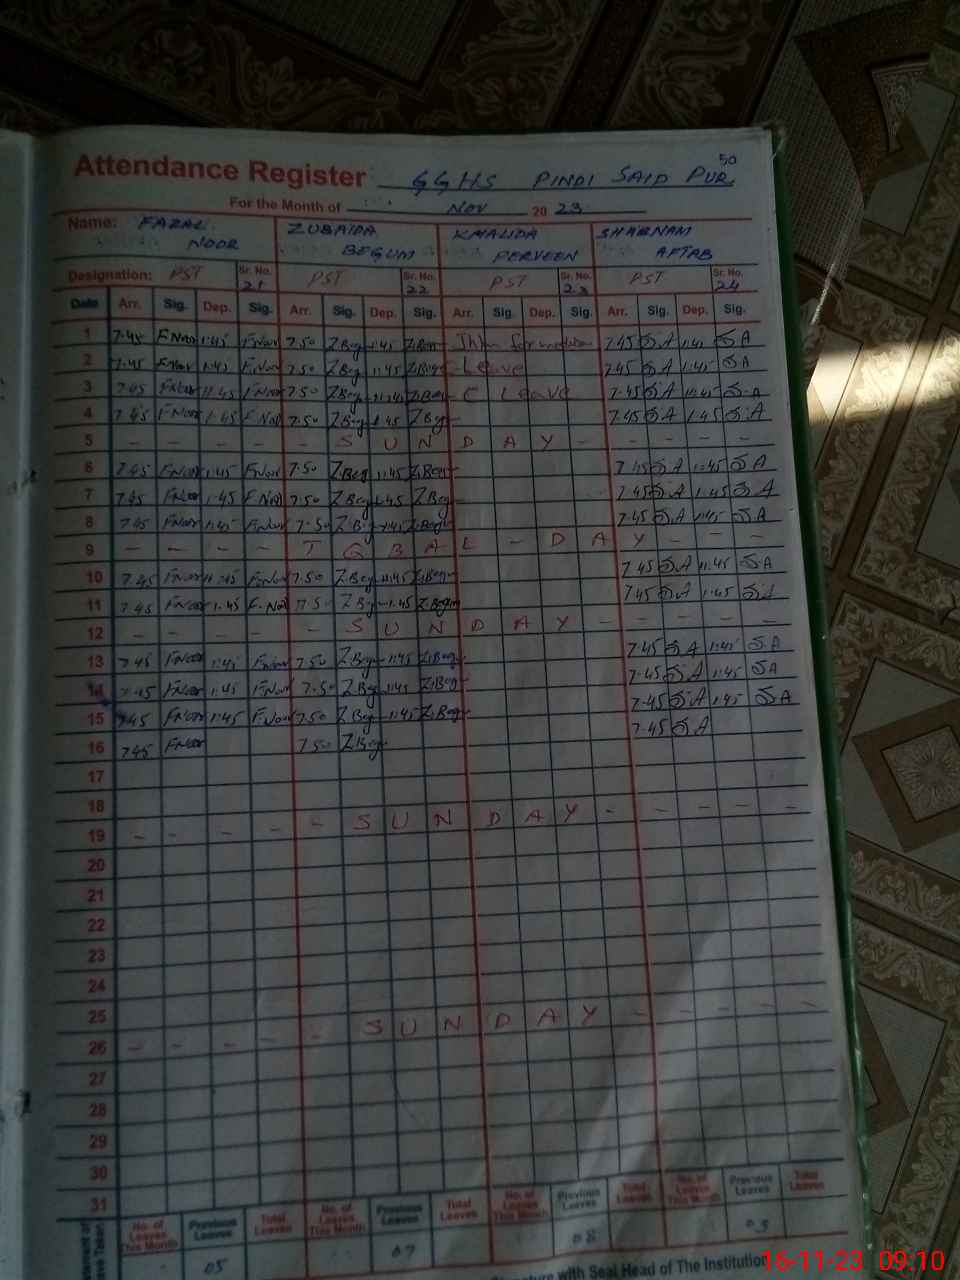 50
Attendance Register GGHS PINDI SAID PUR
For the Month of NOV 2023
Name: FAZAL NOOR ZUBAIDA BEGUM KHALIDA PERVEEN SHABNAM AFTAB
Designation: PST Sr. No. 21 PST Sr. No. 22 PST Sr. No. 23 PST Sr. No. 24
Date Arr. Sig. Dep. Sig. Arr. Sig. Dep. Sig. Arr. Sig. Dep. Sig. Arr. Sig. Dep. Sig.
1 7.45 F.Noor 1:45 F.Noor 7.50 Z.Beg 1:45 Z.Beg 7.45 S.A 1:45 S.A
2 7.45 F.Noor 1:45 F.Noor 7.50 Z.Beg 1:45 Z.Beg Leave 7.45 S.A 1:45 S.A
3 7.45 F.Noor 11.45 F.Noor 7.50 Z.Beg 11:45 Z.Beg C Leave 7.45 S.A 11:45 S.A
4 7.45 F.Noor 1.45 F.Noor 7.50 Z.Beg 1.45 Z.Beg 7.45 S.A 1.45 S.A
5 - - - - - S U N D A Y - - - - -
6 7.45 F.Noor 1:45 F.Noor 7.50 Z.Beg 1:45 Z.Beg 7.45 S.A 1:45 S.A
7 7.45 F.Noor 1.45 F.Noor 7.50 Z.Beg 1.45 Z.Beg 7.45 S.A 1.45 S.A
8 7.45 F.Noor 1:45 F.Noor 7.50 Z.Beg 1:45 Z.Beg 7.45 S.A 1:45 S.A
9 - - - - I Q B A L - D A Y - - -
10 7.45 F.Noor 11:45 F.Noor 7.50 Z.Beg 11:45 Z.Beg 7.45 S.A 11.45 S.A
11 7.45 F.Noor 1.45 F.Noor 7.50 Z.Beg 1.45 Z.Begum 7.45 S.A 1.45 S.A
12 - - - - - S U N D A Y - - - - -
13 7.45 F.Noor 1:45 F.Noor 7.50 Z.Beg 1:45 Z.Beg 7.45 S.A 1:45 S.A
14 7.45 F.Noor 1:45 F.Noor 7.50 Z.Beg 1:45 Z.Beg 7.45 S.A 1:45 S.A
15 7.45 F.Noor 1:45 F.Noor 7.50 Z.Beg 1:45 Z.Beg 7.45 S.A 1:45 S.A
16 7.45 F.Noor 7.50 Z.Beg 7.45 S.A
17
18
19 - - - - - S U N D A Y - - - - -
20
21
22
23
24
25
26 - - - - - S U N D A Y - - - - -
27
28
29
30
31
No. of Leaves This Month Previous Leaves Total Leaves No. of Leaves This Month Previous Leaves Total Leaves No. of Leaves This Month Previous Leaves Total Leaves No. of Leaves This Month Previous Leaves Total Leaves
05 07 08 03
with Seal Head of The Institution
16-11-23 09:10